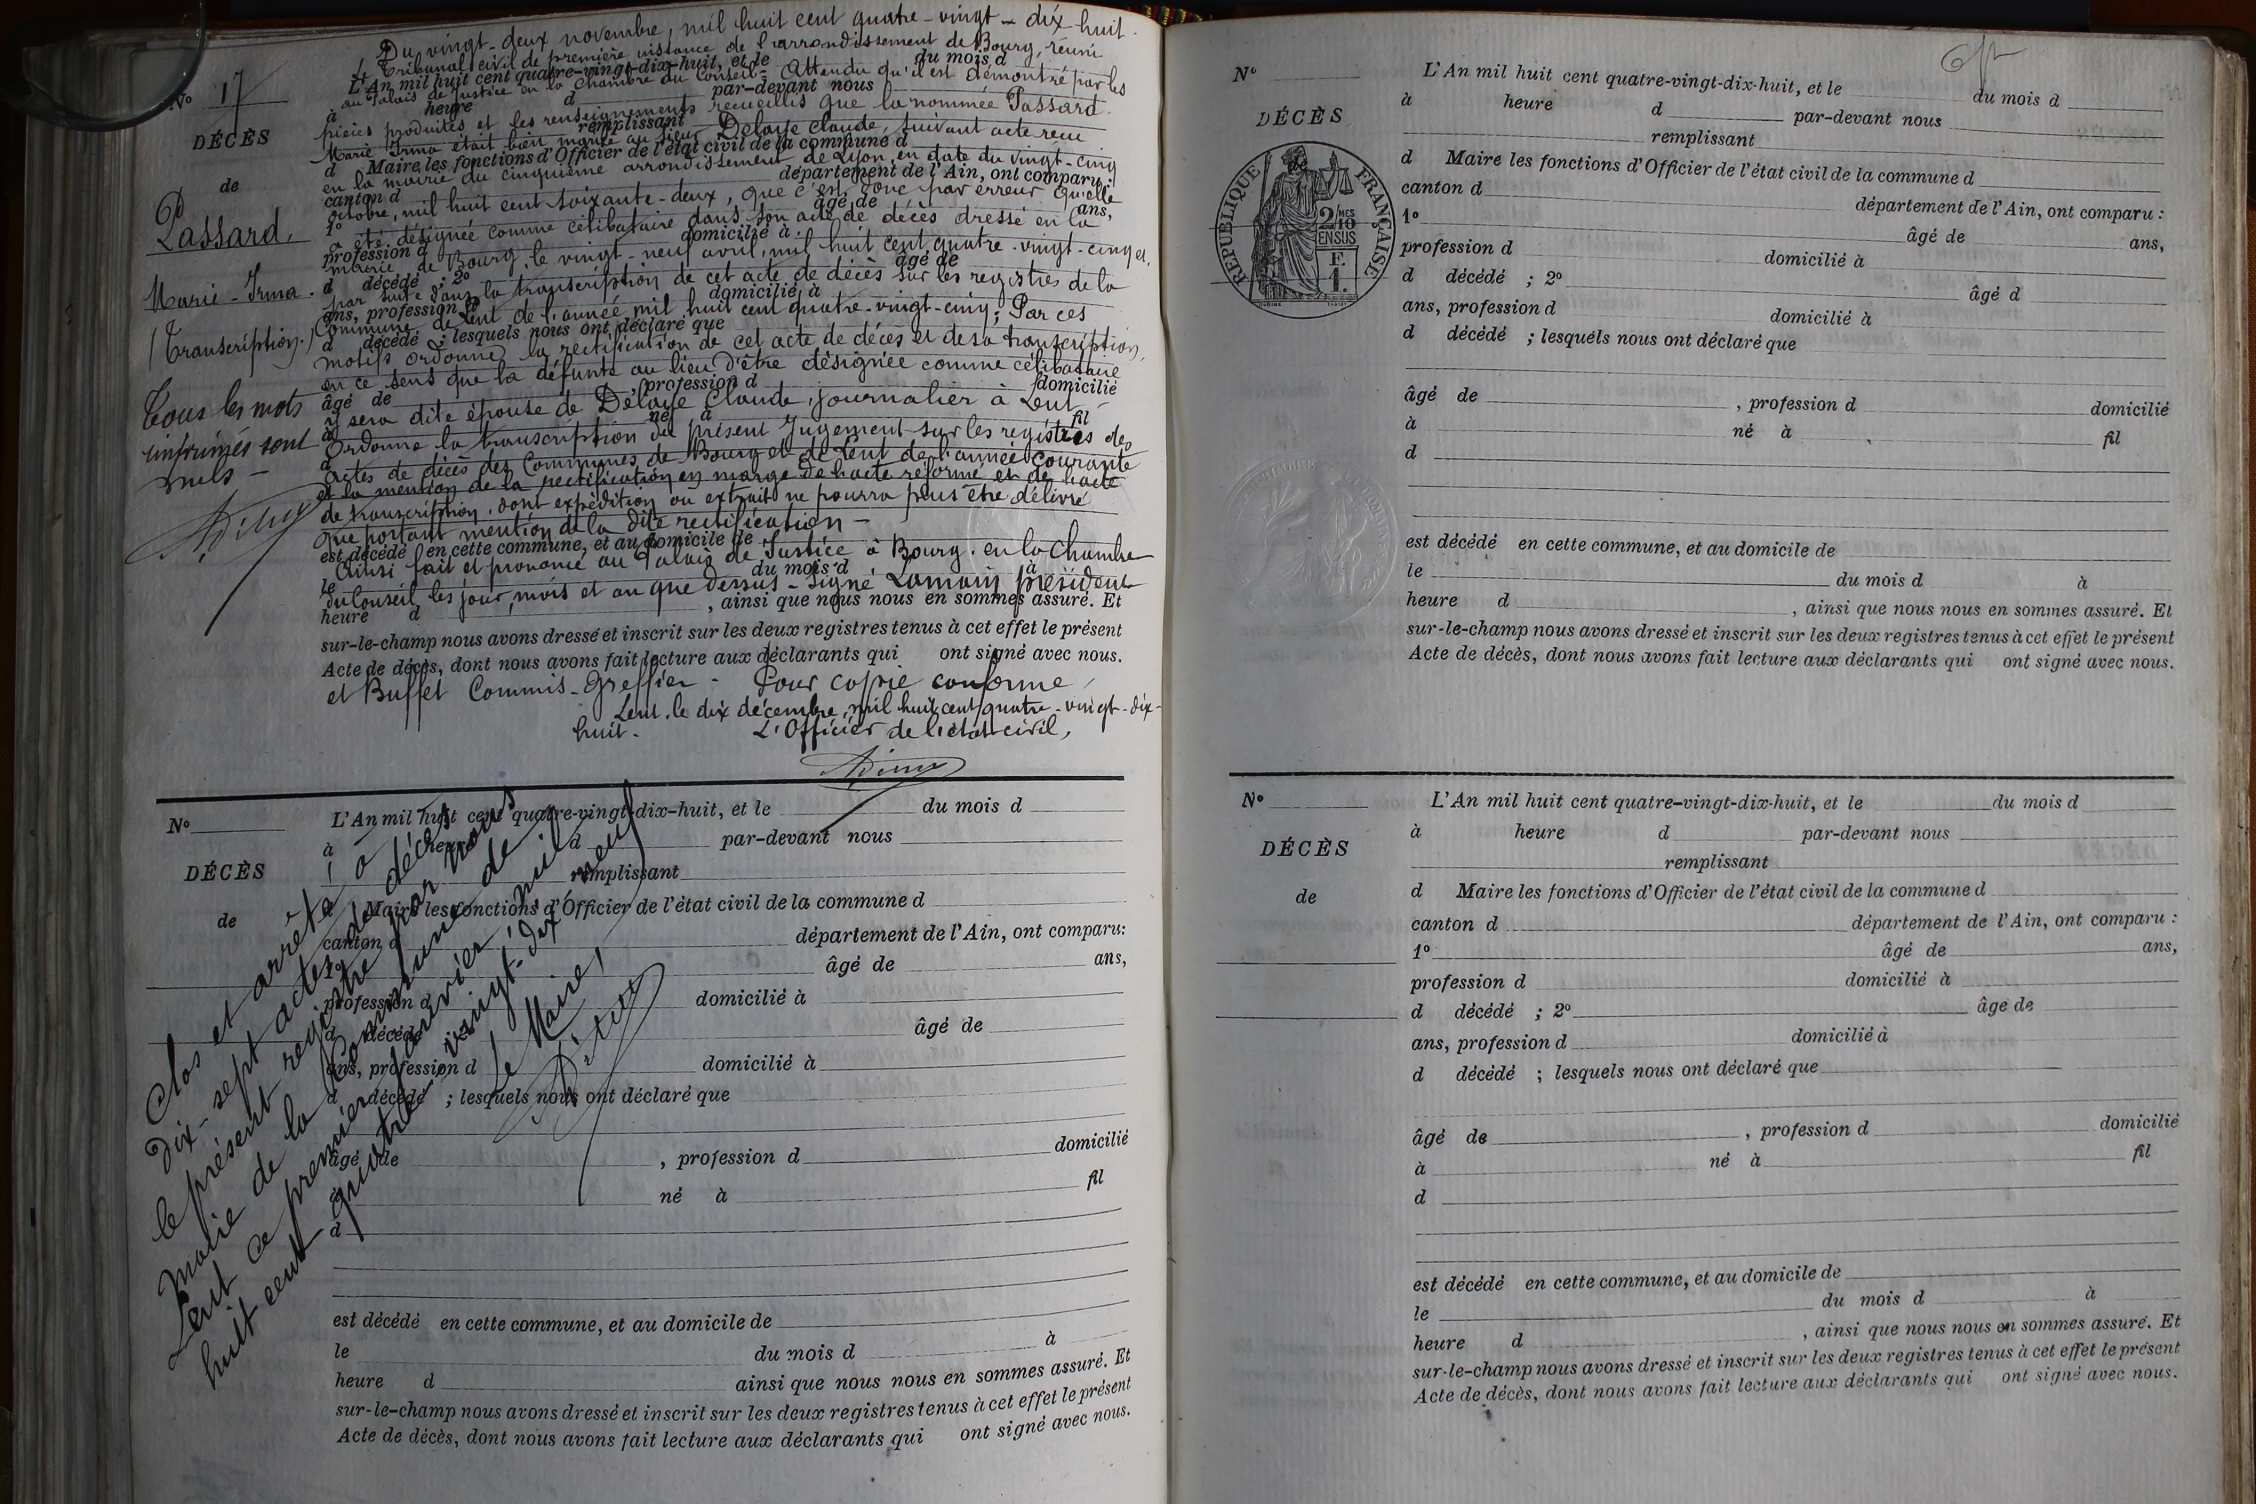 Du vingt-deux novembre, mil huit cent quatre-vingt-dix-huit.
Le Tribunal civil de première instance de l'arrondissement de Bourg, réuni
L'An mil huit cent quatre-vingt-dix-huit, et le du mois d
au Palais de Justice en la Chambre du Conseil = Attendu qu'il est démontré par les
à heure d par-devant nous
pièces produites et les renseignements recueillis que la nommée Passard
remplissant
Marie Irma était bien mariée au sieur Delaye Claude, suivant acte reçu
d Maire les fonctions d'Officier de l'état civil de la commune d
en la mairie du cinquième arrondissement de Lyon, en date du vingt-cinq
canton d département de l'Ain, ont comparu :
octobre, mil huit cent soixante-deux, que c'est donc par erreur qu'elle
1º âgé de ans,
a été désignée comme célibataire dans son acte de décès dressé en la
profession d domicilié à
mairie de Bourg, le vingt-neuf avril, mil huit cent quatre-vingt-cinq et,
d décédé ; 2º âgé de
par suite dans la transcription de cet acte de décès sur les registres de la
ans, profession d domicilié à
Commune de Lent de l'année mil huit cent quatre-vingt-cinq ; Par ces
d décédé ; lesquels nous ont déclaré que
motifs ordonne la rectification de cet acte de décès et de sa transcription,
en ce sens que la défunte au lieu d'être désignée comme célibataire
âgé de , profession d domicilié
y sera dite épouse de Delaye Claude, journalier à Lent
à né à fil
Ordonne la transcription du présent Jugement sur les registres des
d
actes de décès des Communes de Bourg et de Lent de l'année courante
et la mention de la rectification en marge de l'acte réformé et de l'acte
de transcription, dont expédition ou extrait ne pourra plus être délivré
que portant mention de la dite rectification -
est décédé en cette commune, et au domicile de
Ainsi fait et prononcé au Palais de Justice à Bourg, en la Chambre
le du mois d à
du Conseil, les jour, mois et an que dessus - Signé Lamain président
heure d , ainsi que nous nous en sommes assuré. Et
sur-le-champ nous avons dressé et inscrit sur les deux registres tenus à cet effet le présent
Acte de décès, dont nous avons fait lecture aux déclarants qui ont signé avec nous.
et Buffet Commis-Greffier - Pour copie conforme,
Lent, le dix décembre, mil huit cent quatre-vingt-dix-
huit. L'Officier de l'état civil,
Nº 17
DÉCÈS
de
Passard,
Marie-Irma.
(Transcription.)
Tous les mots
imprimés sont
nuls -
Nº
DÉCÈS
de
L'An mil huit cent quatre-vingt-dix-huit, et le du mois d
à heure d par-devant nous
remplissant
d Maire les fonctions d'Officier de l'état civil de la commune d
canton d département de l'Ain, ont comparu:
1º âgé de ans,
profession d domicilié à
d décédé âgé de
ans, profession d domicilié à
d décédé ; lesquels nous ont déclaré que
âgé de , profession d domicilié
à né à fil
d
est décédé en cette commune, et au domicile de
le du mois d à
heure d ainsi que nous nous en sommes assuré. Et
sur-le-champ nous avons dressé et inscrit sur les deux registres tenus à cet effet le présent
Acte de décès, dont nous avons fait lecture aux déclarants qui ont signé avec nous.
Clos et arrêté à
dix-sept actes de décès
le présent registre par nous
Maire de la Commune de
Lent ce premier janvier, mil
huit cent quatre-vingt-dix neuf
Le Maire,
Nº
DÉCÈS
RÉPUBLIQUE FRANÇAISE
2/10MES
EN SUS
F.
1.
L'An mil huit cent quatre-vingt-dix-huit, et le du mois d
à heure d par-devant nous
remplissant
d Maire les fonctions d'Officier de l'état civil de la commune d
canton d département de l'Ain, ont comparu :
1º âgé de ans,
profession d domicilié à
d décédé ; 2º âgé d
ans, profession d domicilié à
d décédé ; lesquels nous ont déclaré que
âgé de , profession d domicilié
à né à fil
d
est décédé en cette commune, et au domicile de
le du mois d à
heure d , ainsi que nous nous en sommes assuré. Et
sur-le-champ nous avons dressé et inscrit sur les deux registres tenus à cet effet le présent
Acte de décès, dont nous avons fait lecture aux déclarants qui ont signé avec nous.
Nº
DÉCÈS
de
L'An mil huit cent quatre-vingt-dix-huit, et le du mois d
à heure d par-devant nous
remplissant
d Maire les fonctions d'Officier de l'état civil de la commune d
canton d département de l'Ain, ont comparu :
1º âgé de ans,
profession d domicilié à
d décédé ; 2º âge de
ans, profession d domicilié à
d décédé ; lesquels nous ont déclaré que
âgé de , profession d domicilié
à né à fil
d
est décédé en cette commune, et au domicile de
le du mois d à
heure d , ainsi que nous nous en sommes assuré. Et
sur-le-champ nous avons dressé et inscrit sur les deux registres tenus à cet effet le présent
Acte de décès, dont nous avons fait lecture aux déclarants qui ont signé avec nous.